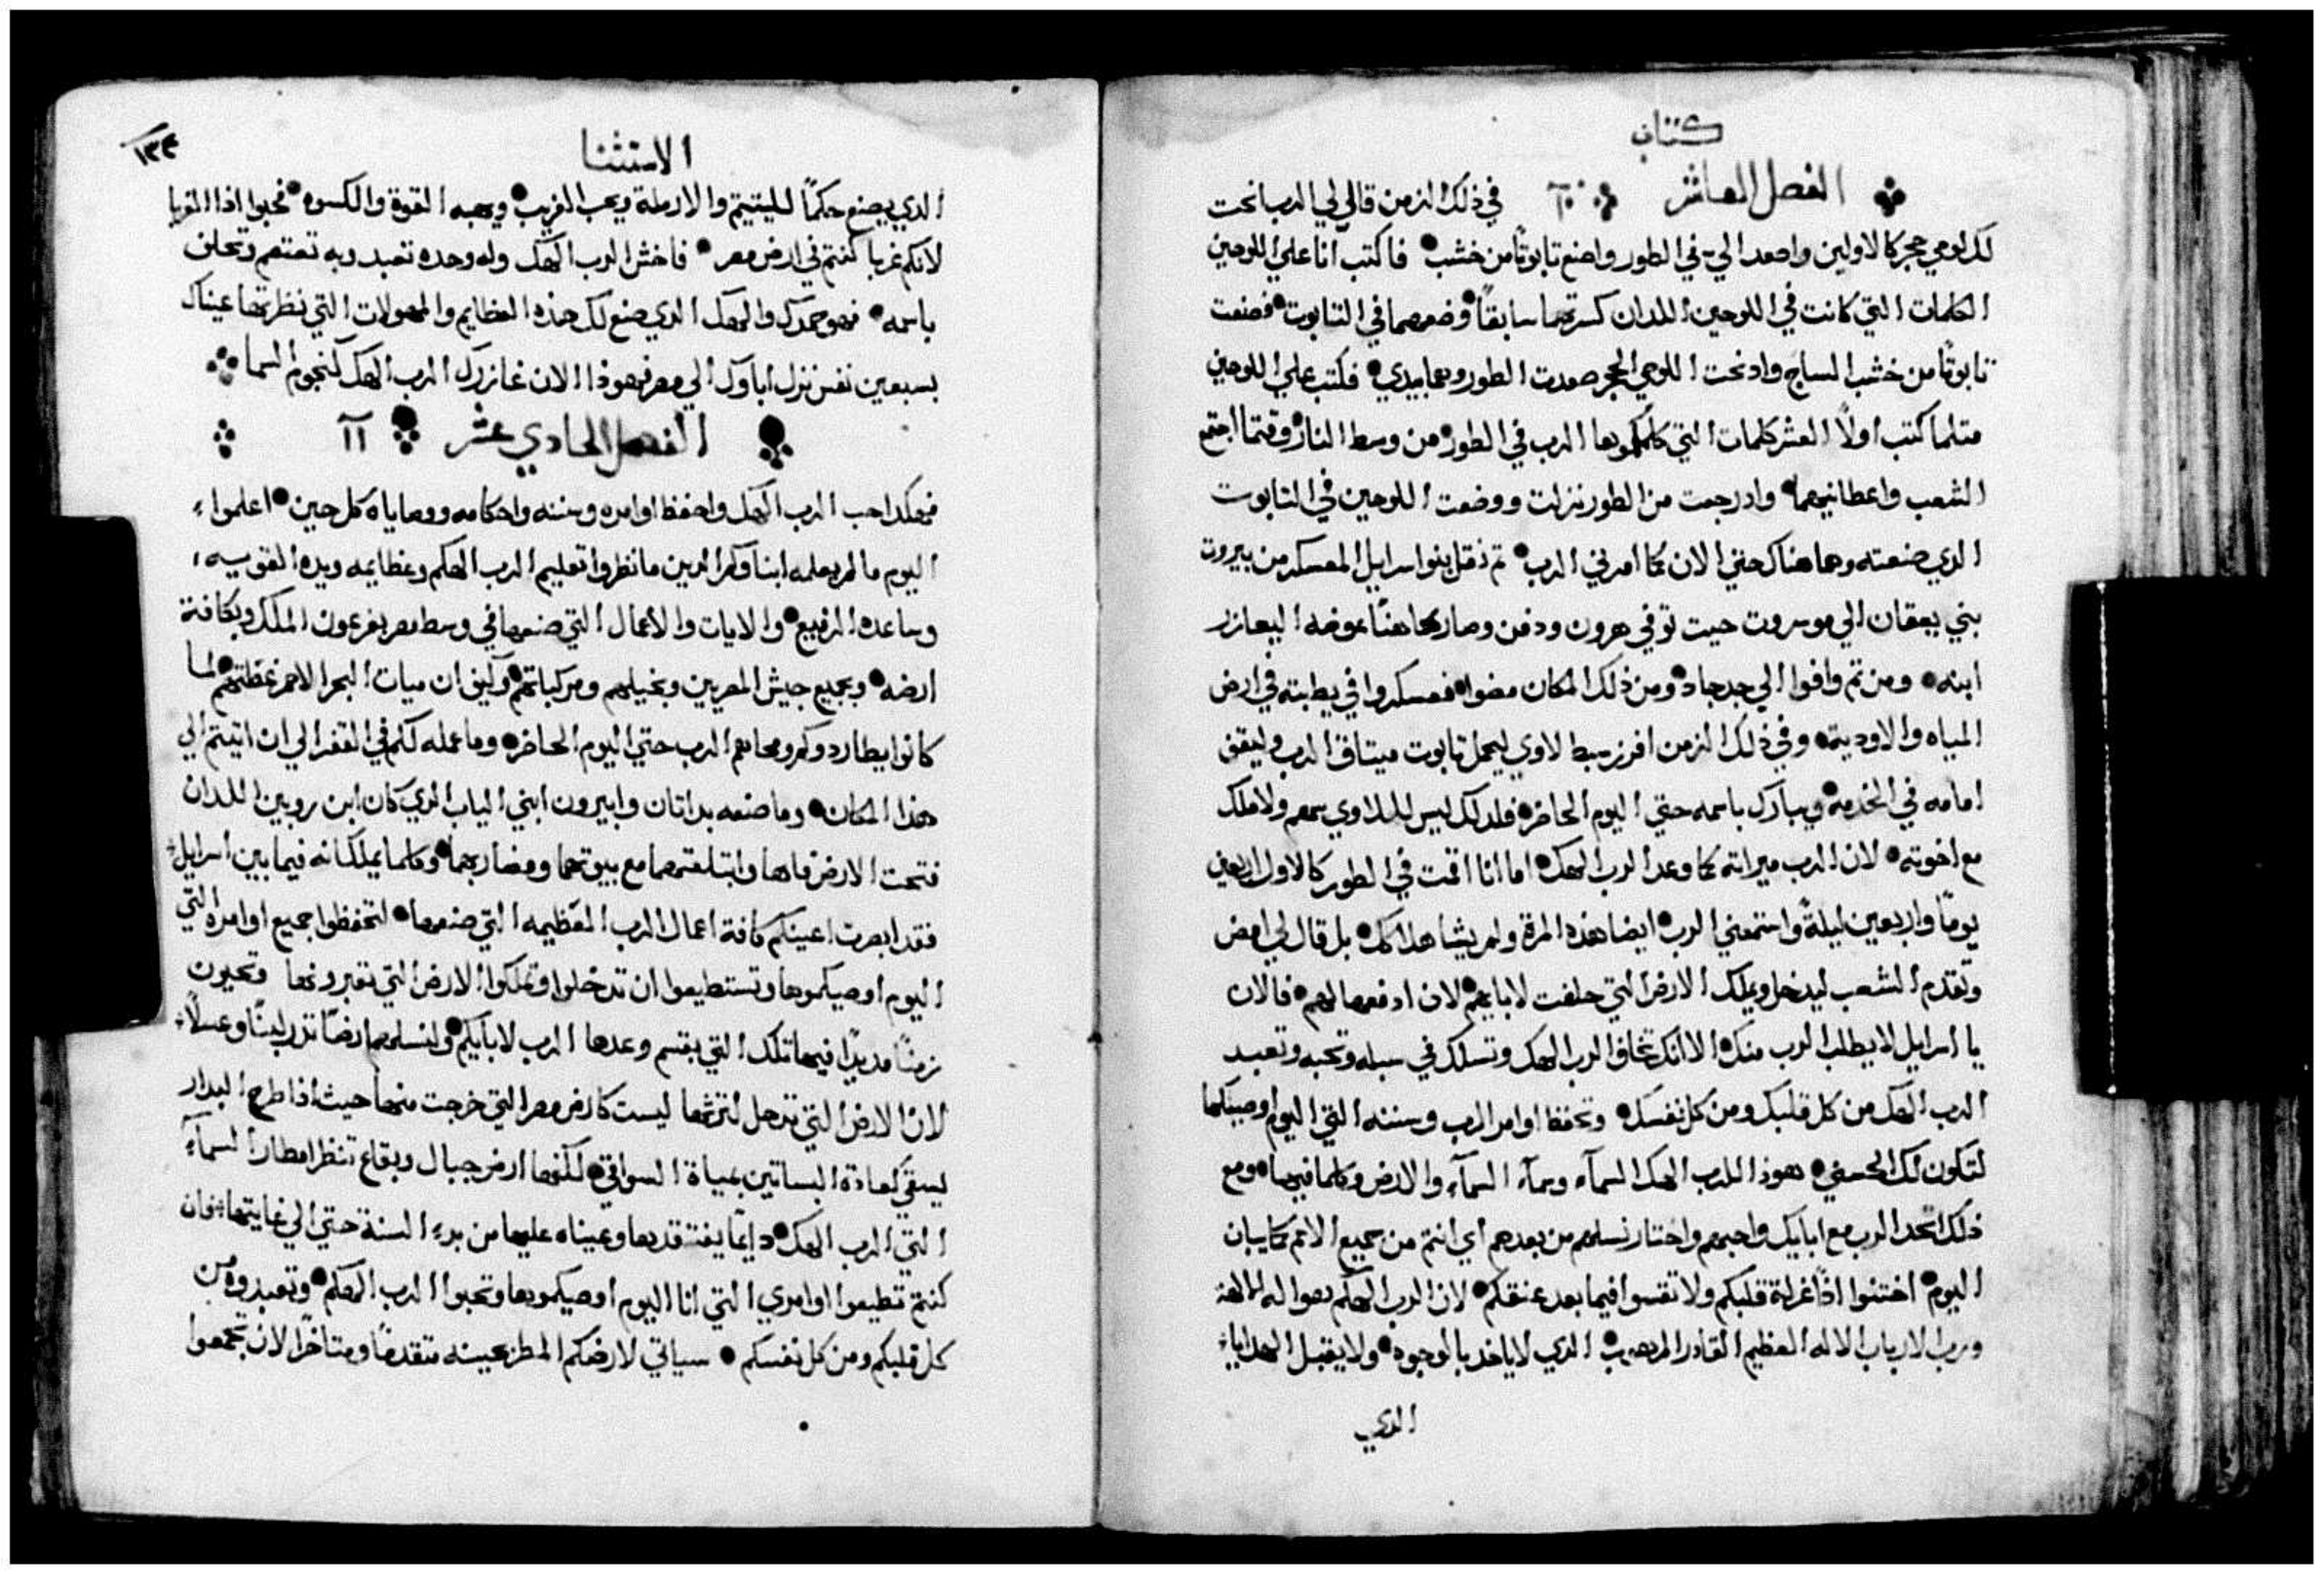 كتاب
الفصل العاشر ١٠ في ذلك الزمن قال لي الرب انحت
لك لوحي حجر كالاولين واصعد الي في الطور واصنع تابوتًا من خشب فاكتب انا علي اللوحين
الكلمات التي كانت في اللوحين اللدان كسرتهما سابقًا وضعهما في التابوت فصنعت
تابوتًا من خشب الساج واد نحت اللوحي الحجر صعدت الطور وهما بيدي فكتب علي اللوحين
متلما كتب اولاً العشر كلمات التي كلمكم بها الرب في الطور من وسط النار وقتما اجتمع
الشعب واعطانيهما واد رجعت من الطور نزلت ووضعت اللوحين في التابوت
الدي صنعته وهما هناك حتي الان كما امرني الرب تم نقل بنو اسرايل المعسكر من بيروت
بني يعقان الي موسروت حيت توفي هرون ودفن وصار كاهنًا عوضه اليعازر
ابنه ومن تم وافوا الي جدجاد ومن ذلك المكان مضوا فعسكروا في يطبته في ارض
المياه والاوديته وفي ذلك الزمن افرز سبط لاوي ليحمل تابوت ميتاق الرب وليقف
امامه في الخدمة ويبارك باسمه حتي اليوم الحاضر فلدلك ليس لللاوي سهم ولا ملك
مع اخوته لان الرب ميراته كما وعد الرب الهك اما انا اقمت في الطور كالاول اربعين
يومًا واربعين ليلةً واستمعني الرب ايضا هذه المرة ولم يشا هلاكك بل قال لي امض
وتقدم الشعب ليدخل ويملك الارض التي حلفت لابايهم لان ادفعها لهم فالان
يا اسرايل لا يطلب الرب منك الا انك تخاف الرب الهك وتسلك في سبله وتحبه وتعبد
الرب الهك من كل قلبك ومن كل نفسك وتحفظ اوامر الرب وسننه التي اليوم اوصيكها
لتكون لك الحسني هوذا للرب الهك السمآء وسمآء السمآء والارض وكلما فيها ومع
ذلك اتحد الرب مع ابايك واحبهم واختار نسلهم من بعدهم اي انتم من جميع الامم كما يبان
اليوم اختنوا اذًا غرلة قلبكم ولا تقسوا فيما بعد عنقكم لان الرب الهكم هو اله الالهة
ورب الارباب الاله العظيم القادر المرهوب الدي لا ياخد بالوجوه ولا يقبل الهدايا
الدي
الاستثنا
١٣٣
الدي يصنع حكمًا لليتيم والارملة ويحب الغريب ويهبه القوة والكسوه فحبوا اذا الغربا
لانكم غربا كنتم في ارض مصر فاخش الرب الهك وله وحده تعبد وبه تعتصم وتحلف
باسمه فهو حمدك والهك الدي صنع لك هذه العظايم والمهولات التي نظرتها عيناك
بسبعين نفس نزل اباوك الي مصر فهوذا الان غازرك الرب الهك كنجوم السما
الفصل الحادي عشر ١١
فهكدا حب الرب الهك واحفظ اوامره وسننه واحكامه ووصاياه كل حين اعلموا
اليوم ما لم يعلمه ابناوكم الدين ما نظروا تعليم الرب الهكم وعظايمه ويده القويه
وساعده الرفيع والايات والاعمال التي صنعها في وسط مصر بفرعون الملك وبكافة
ارضه وبجميع جيش المصريين وبخيلهم ومركباتهم وكيف ان ميات البحر الاحمر غطتهم لما
كانوا يطاردوكم ومحاهم الرب حتي اليوم الحاضر وما عمله لكم في القفر الي ان اتيتم الي
هذا المكان وما صنعه بداتان وابيرون ابني الياب الدي كان ابن روبين اللدان
فتحت الارض فاها وابتلعتهما مع بيوتهما ومضاربهما وكلما يملكانه فيما بين اسرايل
فقد ابصرت اعينكم كافة اعمال الرب العظيمه التي صنعها لتحفظوا جميع اوامره التي
اليوم اوصيكموها وتستطيعوا ان تدخلوا وتملكوا الارض التي تعبرونها وتحيون
زمنًا مديدًا فيها تلك التي بقسم وعدها الرب لابايكم ولنسلهم ارضًا تدر لبنًا وعسلاً
لان الارض التي تدخل لترثها ليست كارض مصر التي خرجت منها حيث اذا طرح البدار
يسقي كعادة البساتين بمياة السواقي لكنها ارض جبال وبقاع تنظر امطار السمآء
التي الرب الهك دايمًا يفتقدها وعيناه عليها من بدء السنة حتي الي غايتها فان
كنتم تطيعوا اوامري التي انا اليوم اوصيكموها وتحبوا الرب الهكم وتعبدوه من
كل قلبكم ومن كل نفسكم سياتي لارضكم المطر بحينه متقدمًا ومتاخرًا لان تجمعوا